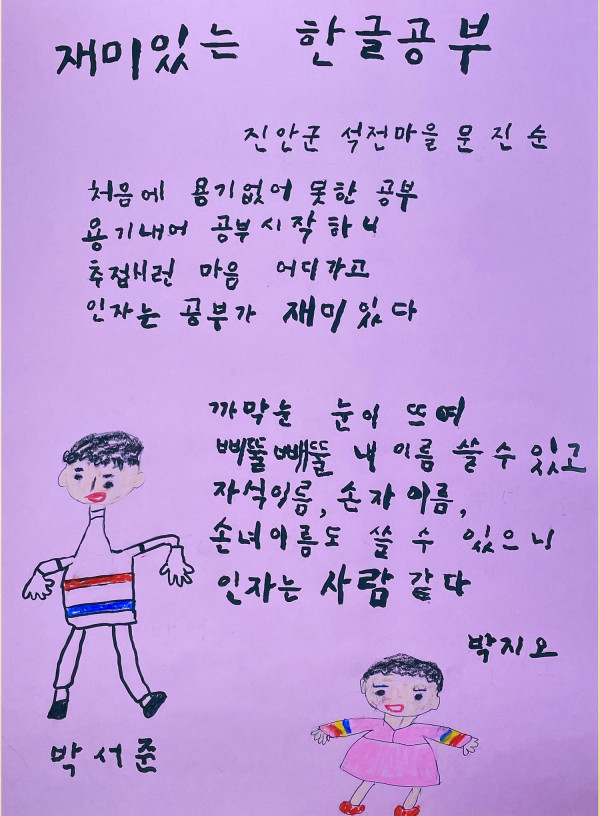 재미있는 한글공부
진안군 석전마을 문진순
처음에 용기없어 못한 공부
용기내어 공부시작하니
추접시런 마음 어디가고
인자는 공부가 재미있다
까막눈 눈이 뜨여
삐뚤빼뚤 내 이름 쓸 수 있고
자식이름, 손자이름,
손녀이름도 쓸 수 있으니
인자는 사람 같다
박지오
박서준